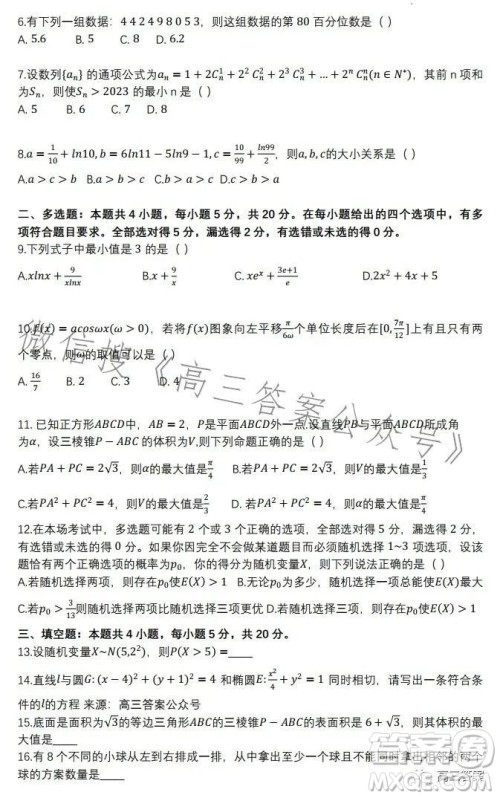 6.有下列一组数据：4 4 2 4 9 8 0 5 3，则这组数据的第 80 百分位数是（ ）
A. 5.6 B. 5 C. 8 D. 6.2
7.设数列{aₙ} 的通项公式为aₙ = 1 + 2Cₙ¹ + 2² Cₙ² + 2³ Cₙ³ + … + 2ⁿ Cₙⁿ(n ∈ N*)，其前 n 项和
为Sₙ，则使Sₙ > 2023 的最小 n 是（ ）
A. 5 B. 6 C. 7 D. 8
8.a = 1/10 + ln10, b = 6ln11 − 5ln9 − 1, c = 10/99 + ln99/2，则a, b, c的大小关系是（ ）
A.a > c > b B.a > b > c C.b > a > c D.c > b > a
二、多选题：本题共 4 小题，每小题 5 分，共 20 分。在每小题给出的四个选项中，有多
项符合题目要求。全部选对得 5 分，漏选得 2 分，有选错或未选的得 0 分。
9.下列式子中最小值是 3 的是（ ）
A.xlnx + 9/xlnx B.x + 9/x C. xeˣ + 3e+1/e D.2x² + 4x + 5
10.f(x) = acosωx(ω > 0)，若将f(x)图象向左平移π/6ω个单位长度后在[0, 7π/12]上有且只有两
个零点，则ω的取值可以是（ ）
A. 16/7 B. 2 C. 3 D. 4
11. 已知正方形ABCD中，AB = 2，P是平面ABCD外一点.设直线PB与平面ABCD所成角
为α，设三棱锥P − ABC 的体积为V,则下列命题正确的是（ ）
A.若PA + PC = 2√3，则α的最大值是π/4 B.若PA + PC = 2√3，则V的最大值是1/3
C.若PA² + PC² = 4，则V的最大值是2/3 D.若PA² + PC² = 4，则α的最大值是π/4
12.在本场考试中，多选题可能有 2 个或 3 个正确的选项，全部选对得 5 分，漏选得 2 分，
有选错或未选的得 0 分。如果你因完全不会做某道题目而随机选择 1~3 项选项，设该
题恰有两个正确选项的概率为p₀，你的得分为随机变量X，则下列说法正确的是（ ）
A.若随机选择两项，则存在p₀使E(X) > 1 B.无论p₀为多少，随机选择一项总能使E(X)最大
C.若p₀ > 3/13则随机选择两项比随机选择三项更优 D.若随机选择三项，则存在p₀使E(X) > 1
三、填空题：本题共 4 小题，每小题 5 分，共 20 分。
13.设随机变量X~N(5,2²)，则P(X > 5) =____
14.直线l与圆G: (x − 4)² + (y + 1)² = 4 和椭圆E: x²/4 + y² = 1 同时相切，请写出一条符合条
件的l的方程 来源：高三答案公众号
15.底面是面积为√3的等边三角形ABC的三棱锥P − ABC的表面积是 6 + √3，则其体积的最
大值是____
16.有 8 个不同的小球从左到右排成一排，从中拿出至少一个球且不能同时拿出相邻的两个
球的方案数量是____
微信搜《高三答案公众号》
答案圈
高三答案